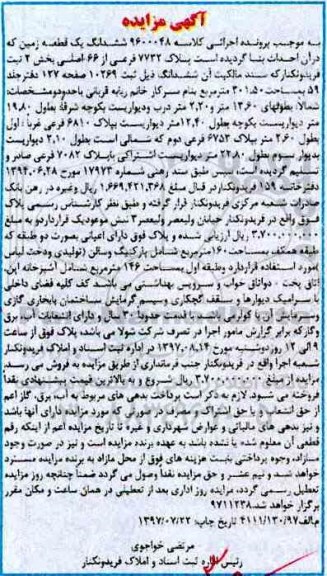 آگهی مزایده
به موجب پرونده اجرائی کلاسه ۹۶۰۰۰۴۸ ششدانگ یک قطعه زمین که
در آن احداث بنا گردیده است بپلاک ۷۷۳۲ فرعی از ۶۶ اصلی بخش ۲ ثبت
فریدونکنار که سند مالکیت آن ششدانگ ذیل ثبت ۱۰۲۶۹ صفحه ۱۲۷ دفتر جلد
۵۹ بمساحت ۳۰۱.۵۰ مترمربع بنام سرکار خانم ربابه قربانی باحدود ومشخصات:
شمالا: بطولهای ۱۳.۶۰ متر و ۲.۲۰ متر درب ودیواریست بکوچه شرقا: بطول ۱۹.۸۰
متر دیواریست بکوچه بطول ۱۲.۴۰ متر دیواریست بپلاک ۶۸۱۰ فرعی غربا: اول
بطول ۲.۶۰ متر بپلاک ۶۷۵۳ فرعی دوم که شمالی است بطول ۲.۱۰ دیواریست
بدیوار سوم بطول ۲۲.۸۰ متر دیواریست اشتراکی باپلاک ۷۰۸۲ فرعی صادر و
تسلیم گردیده است، سپس طبق سند رهنی شماره ۱۷۹۷۳ مورخ ۱۳۹۴.۰۶.۲۸
دفترخانه ۱۵۹ فریدونکنار در قبال مبلغ ۱.۶۶۹.۴۲۱.۳۶۸ ریال وغیره در رهن بانک
صادرات شعبه مرکزی فریدونکنار قرار گرفته و طبق نظر کارشناس رسمی پلاک
فوق واقع در فریدونکنار خیابان ولیعصر ولیعصر ۳ نبش مودیک قرار دارد و به مبلغ
۳.۷۰۰.۰۰۰.۰۰۰ ریال ارزیابی شده و پلاک فوق دارای اعیانی بصورت دو طبقه که
طبقه همکف بمساحت ۱۶۰ مترمربع شامل پارکینگ وسالن (تولیدی ودخت لباس
)مورد استفاده قرار دارد وطبقه اول بمساحت ۱۴۶ مترمربع شامل آشپزخانه اپن،
اتاق پخت ، دواتاق خواب و سرویس بهداشتی می باشد کف کلیه فضای داخلی
با سرامیک دیوارها و سقف گچکاری وسیم گرمایش ساختمان بابخاری گازی
وسرمایش آن با کولر می باشد، با قدمت حدودا ۳۰ سال و دارای انشعابات آب، برق
وگاز که برابر گزارش مامور اجرا در تصرف شرکت شولا می باشد، پلاک فوق از ساعت
۹ الی ۱۲ روز دوشنبه مورخ ۱۳۹۷.۰۸.۱۴ در اداره ثبت اسناد و املاک فریدونکنار
شعبه اجرا واقع در فریدونکنار جنب فرمانداری از طریق مزایده به فروش می رسد،
مزایده از مبلغ ۳.۷۰۰.۰۰۰.۰۰۰ ریال شروع و به بالاترین قیمت پیشنهادی نقدا
فروخته می شود. لازم به ذکر است پرداخت بدهی های مربوط به آب، برق، گاز اعم
از حق انشعاب و یا حق اشتراک و مصرف در صورتی که مورد مزایده دارای آنها باشد
و نیز بدهی های مالیاتی و عوارض شهرداری و غیره تا تاریخ مزایده اعم از اینکه رقم
قطعی آن معلوم شده یا نشده باشد به عهده برنده مزایده است و نیز در صورت وجود
مازاد، وجوه پرداختی بابت هزینه های فوق از محل مازاد به برنده مزایده مسترد
خواهد شد و نیم عشر و حق مزایده نقدا وصول می گردد ضمنا چنانچه روز مزایده
تعطیل رسمی گردد، مزایده روز اداری بعد از تعطیلی در همان ساعت و مکان مقرر
برگزار خواهد شد. ۹۷۱۱۲۳۸
م.الف ۴۱۱۱۱۳۰/۹۷ تاریخ چاپ: ۱۳۹۷/۰۷/۲۲
مرتضی خواجوی
رئیس اداره ثبت اسناد و املاک فریدونکنار